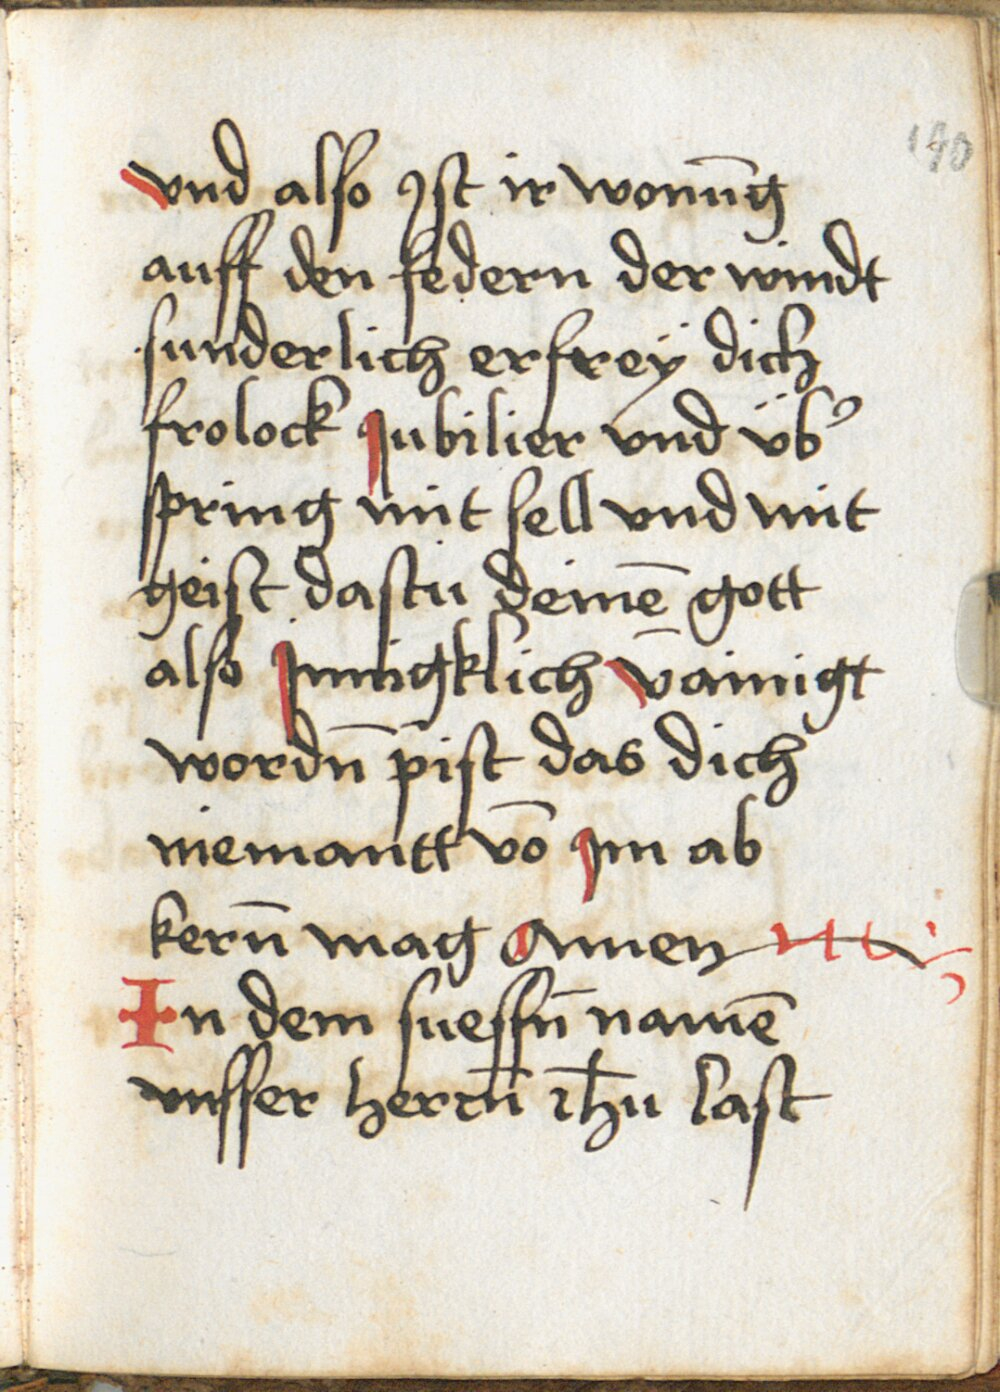 190
vnd also Jst ir wonūg
auff den federn der windt
sunderlich erfrey dich
frolock Jubilier vnd üb᾽
spring mit sell vnd mit
geist dastu deinē gott
also Jnnigklich v̄ainigt
wordn̄ pist das dich
niemantt vō Jm ab
kern̄ mag Amen
In dem suessn̄ namē
vnsser herrn̄ ih̄u last